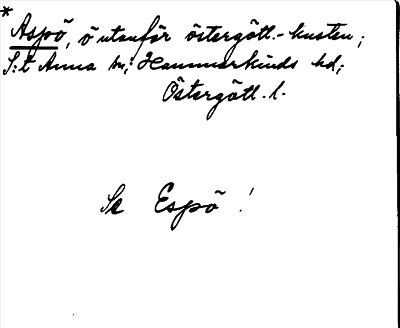 * Aspö, ö utanför östergötl.-kusten;
S:t Anna sn; Hammarkinds hd;
Östergötl. l.
Se Espö!